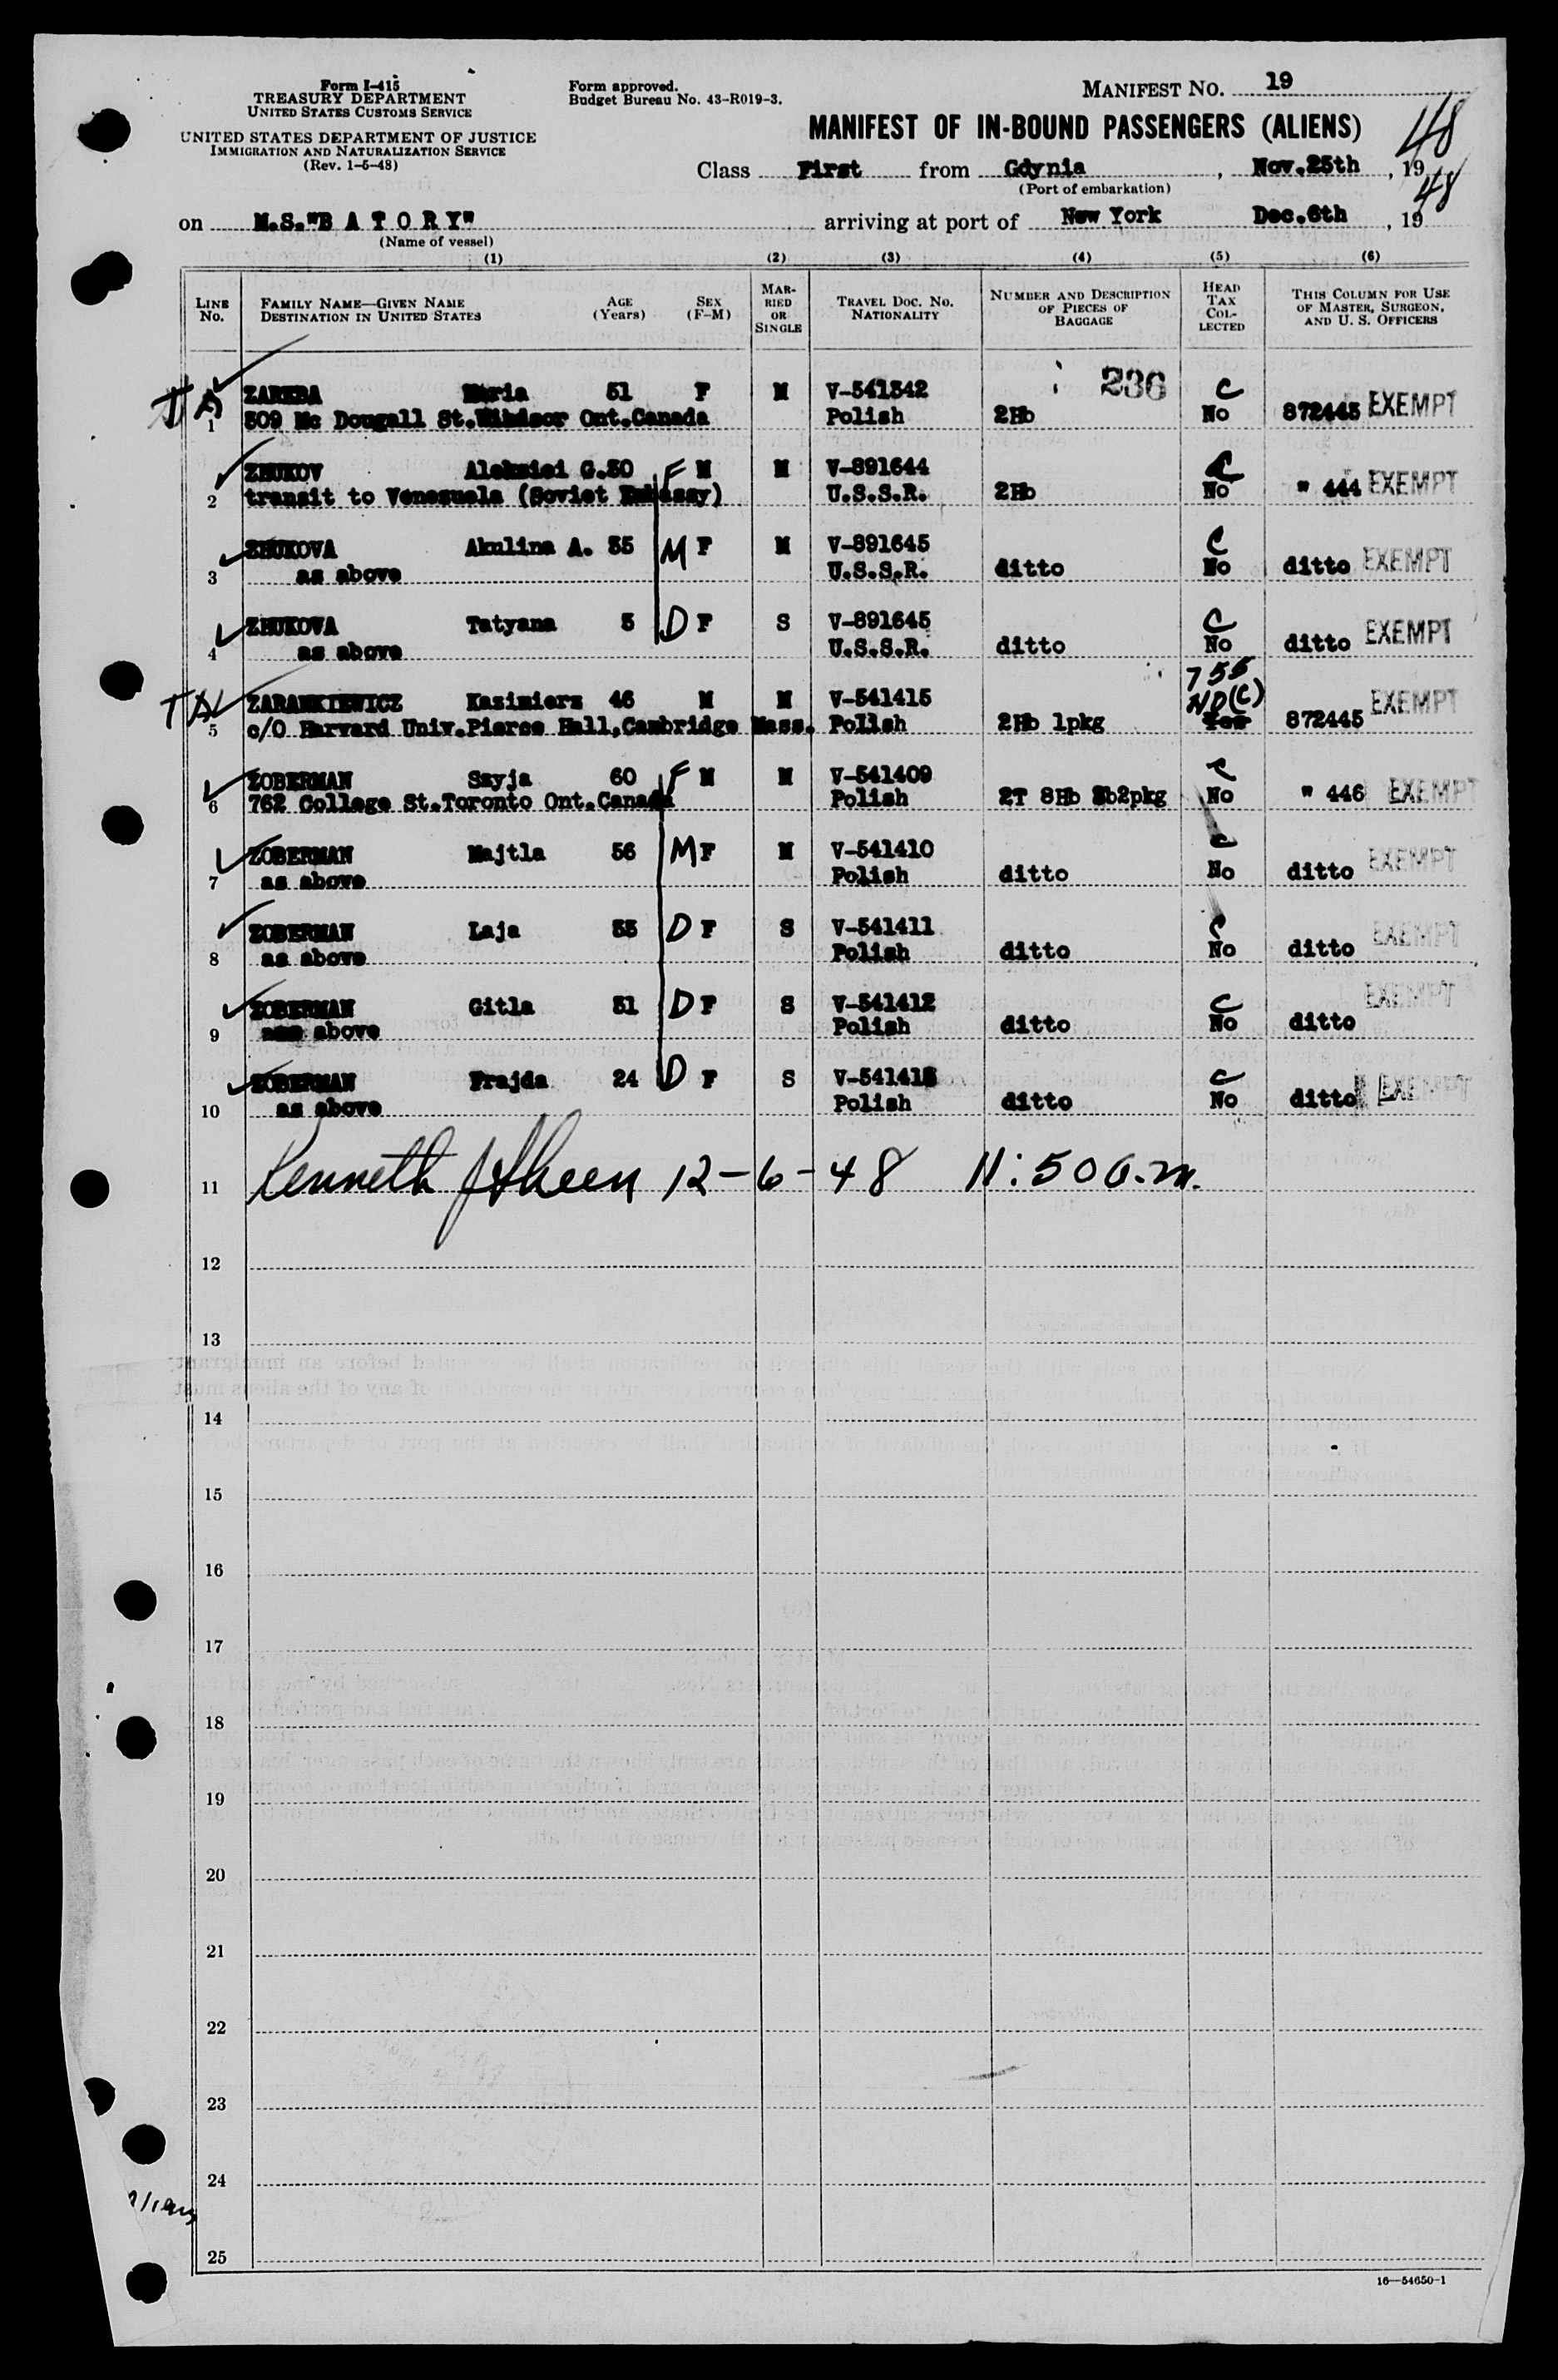 Form I-415
TREASURY DEPARTMENT
UNITED STATES CUSTOMS SERVICE
UNITED STATES DEPARTMENT OF JUSTICE
IMMIGRATION AND NATURALIZATION SERVICE
(Rev. 1-5-48)
Form approved.
Budget Bureau No. 43-R019-3.
MANIFEST NO. 19
MANIFEST OF IN-BOUND PASSENGERS (ALIENS)
Class First from Gdynia, Nov.25th, 1948
(Port of embarkation)
on M.S."B A T O R Y" arriving at port of New York Dec.6th, 1948
(Name of vessel)
(1) (2) (3) (4) (5) (6)
LINE No. FAMILY NAME—GIVEN NAME DESTINATION IN UNITED STATES AGE (Years) SEX (F-M) MARRIED OR SINGLE TRAVEL DOC. NO. NATIONALITY NUMBER AND DESCRIPTION OF PIECES OF BAGGAGE HEAD TAX COLLECTED THIS COLUMN FOR USE OF MASTER, SURGEON, AND U. S. OFFICERS
236
ZAREBA Maria 51 F M V-541342 C
1 509 Mc Dougall St.Windsor Ont.Canada Polish 2Hb No 872445 EXEMPT
ZHUKOV Aleksiei G.30 F M M V-891644 C
2 transit to Venezuela (Soviet Embassy) U.S.S.R. 2Hb No " 444 EXEMPT
ZHUKOVA Akulina A. 35 M F M V-891645 C
3 as above U.S.S.R. ditto No ditto EXEMPT
ZHUKOVA Tatyana 5 D F S V-891645 C
4 as above U.S.S.R. ditto No ditto EXEMPT
755
ZARANKIEWICZ Kazimierz 46 M M V-541415 ND(C)
5 c/O Harvard Univ.Pierce Hall,Cambridge Mass. Polish 2Hb 1pkg Yes 872445 EXEMPT
ZOBERMAN Szyja 60 F M M V-541409 C
6 762 College St.Toronto Ont.Canada Polish 2T 8Hb 2pkg No " 446 EXEMPT
ZOBERMAN Majtla 56 M F M V-541410 C
7 as above Polish ditto No ditto EXEMPT
ZOBERMAN Laja 35 D F S V-541411 C
8 as above Polish ditto No ditto EXEMPT
ZOBERMAN Gitla 31 D F S V-541412 C
9 as above Polish ditto No ditto EXEMPT
ZOBERMAN Frajda 24 D F S C
10 as above Polish ditto No ditto EXEMPT
11 Kenneth 12-6-48 11:50 a.m.
12
13
14
15
16
17
18
19
20
21
22
23
24
25
16—54650-1